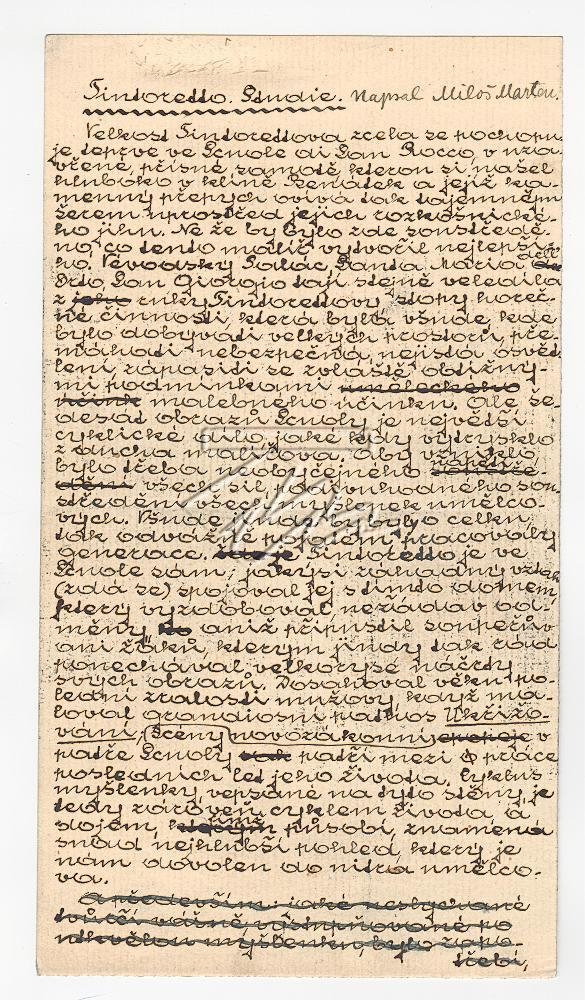 Tintoretto. Studie. Napsal Miloš Marten.
Velkost Tintorettova zcela se pochopu-
je teprve ve Scuole di San Rocco, v uza-
vřené, přísné samotě, kterou si našel
hluboko v klíně Benátek a jejíž ka-
menný přepych ovívá tak tajemným
šerem uprostřed jejich rozkošnické-
ho jihu. Ne že by bylo zde soustředě-
no, co tento malíř vytvořil nejlepší-
ho. Vévodský Palác, Santa Maria dell'
Orto, San Giorgio tají stejně veledíla
z jeho ruky Tintorettovy, stopy horeč-
né činnosti, která byla všude, kde
bylo dobývati velkých prostorů, pře-
máhati nebezpečná, nejistá osvět-
lení, zápasiti se zvláště obtížný-
mi podmínkami uměleckého
účinku malebného účinku. Ale še-
desát obrazů Scuoly je největší
cyklické dílo, jaké kdy vytrysklo
z ducha malířova. Aby vzniklo,
bylo třeba neobyčejného napětí
všech sil, podivuhodného sou-
středění všech myšlenek umělco-
vých. Všude jinde by bylo celku
tak odvážně pojatém pracovaly
generace. Tintoretto je ve
Scuole sám; jakýsi záhadný vztah
(zdá se) spojoval jej s tímto domem,
který vyzdoboval, nežádav od-
měny aniž připustil soupeřův
ani žáků, kterým jindy tak rád
ponechával velkorysé náčrty
svých obrazů. Dosahoval věku po-
slední zralosti mužovy, když ma-
loval grandiosní pathos Ukřižo-
vání, (Scény novozákonní epopeje v
patře Scuoly patří mezi práce
posledních let jeho života. Cyklus
myšlenky, vepsané na tyto stěny, je
tedy zároveň cyklem života a
dojem, kterým působí, znamená
snad nejhlubší pohled, který je
nám dovolen do nitra umělco-
va.
A především: jaké neslýchané
tvůrčí vášně, vystupňované po
bylo zapo-
třebí,